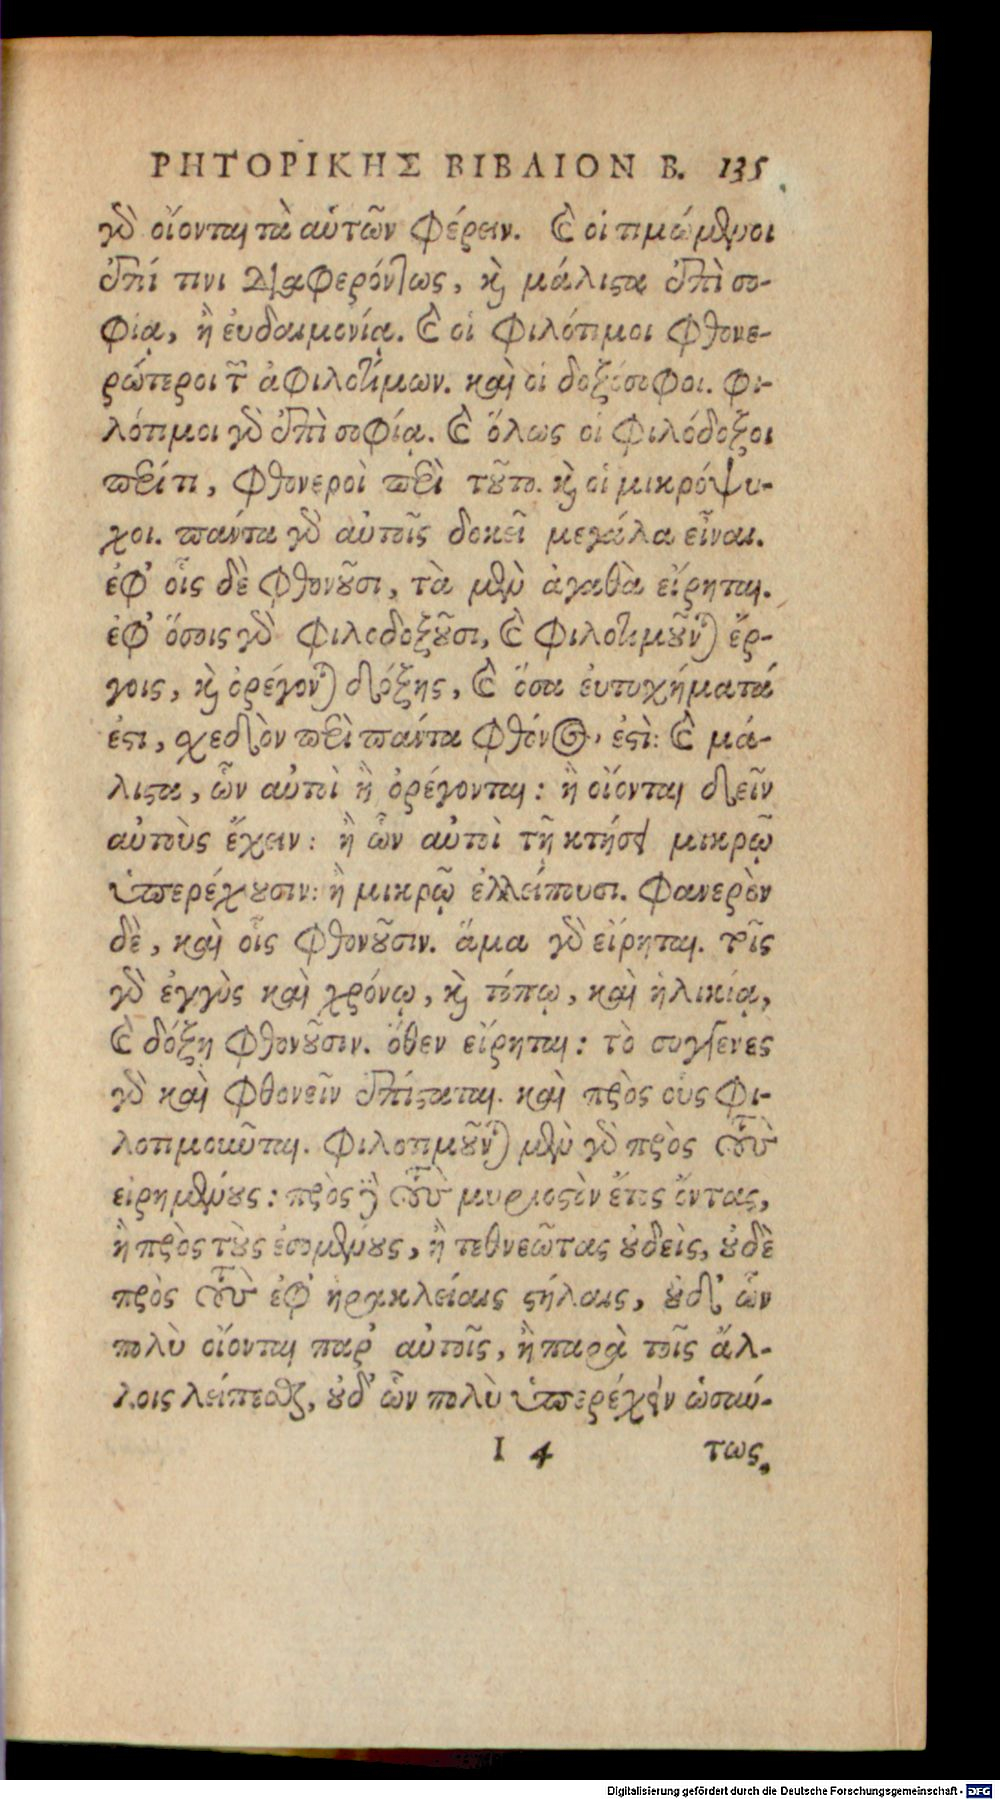 ΡΗΤΟΡΙΚΗΣ ΒΙΒΛΙΟΝ Β. 135
γὰρ οἴονται τὰ αὑτῶν φέρειν. καὶ οἱ τιμώμενοι
ἐπί τινι διαφερόντως, καὶ μάλιστα ἐπὶ σο-
φίᾳ, ἢ εὐδαιμονίᾳ. καὶ οἱ φιλότιμοι φθονε-
ρώτεροι τῶν ἀφιλοτίμων. καὶ οἱ δοξόσοφοι. φι-
λότιμοι γὰρ ἐπὶ σοφίᾳ. καὶ ὅλως οἱ φιλόδοξοι
περί τι, φθονεροὶ περὶ τοῦτο. καὶ οἱ μικρόψυ-
χοι. πάντα γὰρ αὐτοῖς δοκεῖ μεγάλα εἶναι.
ἐφ' οἷς δὲ φθονοῦσι, τὰ μὲν ἀγαθὰ εἴρηται.
ἐφ' ὅσοις γὰρ φιλοδοξοῦσι, καὶ φιλοτιμοῦνται ἔρ-
γοις, καὶ ὀρέγονται δόξης, καὶ ὅσα εὐτυχήματά
ἐστι, σχεδὸν περὶ πάντα φθόνος ἐστὶ: καὶ μά-
λιστα, ὧν αὐτοὶ ἢ ὀρέγονται: ἢ οἴονται δεῖν
αὐτοὺς ἔχειν: ἢ ὧν αὐτοὶ τῇ κτήσει μικρῷ
ὑπερέχουσιν: ἢ μικρῷ ἐλλείπουσι. Φανερὸν
δὲ, καὶ οἷς φθονοῦσιν. ἅμα γὰρ εἴρηται. τοῖς
γὰρ ἐγγὺς καὶ χρόνῳ, καὶ τόπῳ, καὶ ἡλικίᾳ,
καὶ δόξῃ φθονοῦσιν. ὅθεν εἴρηται: τὸ συγγενὲς
γὰρ καὶ φθονεῖν ἐπίσταται. καὶ πρὸς οὓς φι-
λοτιμοῦνται. φιλοτιμοῦνται μὲν γὰρ πρὸς τοὺς
εἰρημένους: πρὸς δὲ τοὺς μυριοστὸν ἔτος ὄντας,
ἢ πρὸς τοὺς ἐσομένους, ἢ τεθνεῶτας οὐδεὶς, οὐδὲ
πρὸς τοὺς ἐφ' ἡρακλείαις στήλαις, οὐδ' ὧν
πολὺ οἴονται παρ' αὐτοῖς, ἢ παρὰ τοῖς ἄλ-
λοις λείπεσθαι, οὐδ' ὧν πολὺ ὑπερέχειν ὡσαύ-
Ι 4 τως,
Digitalisierung gefördert durch die Deutsche Forschungsgemeinschaft - DFG